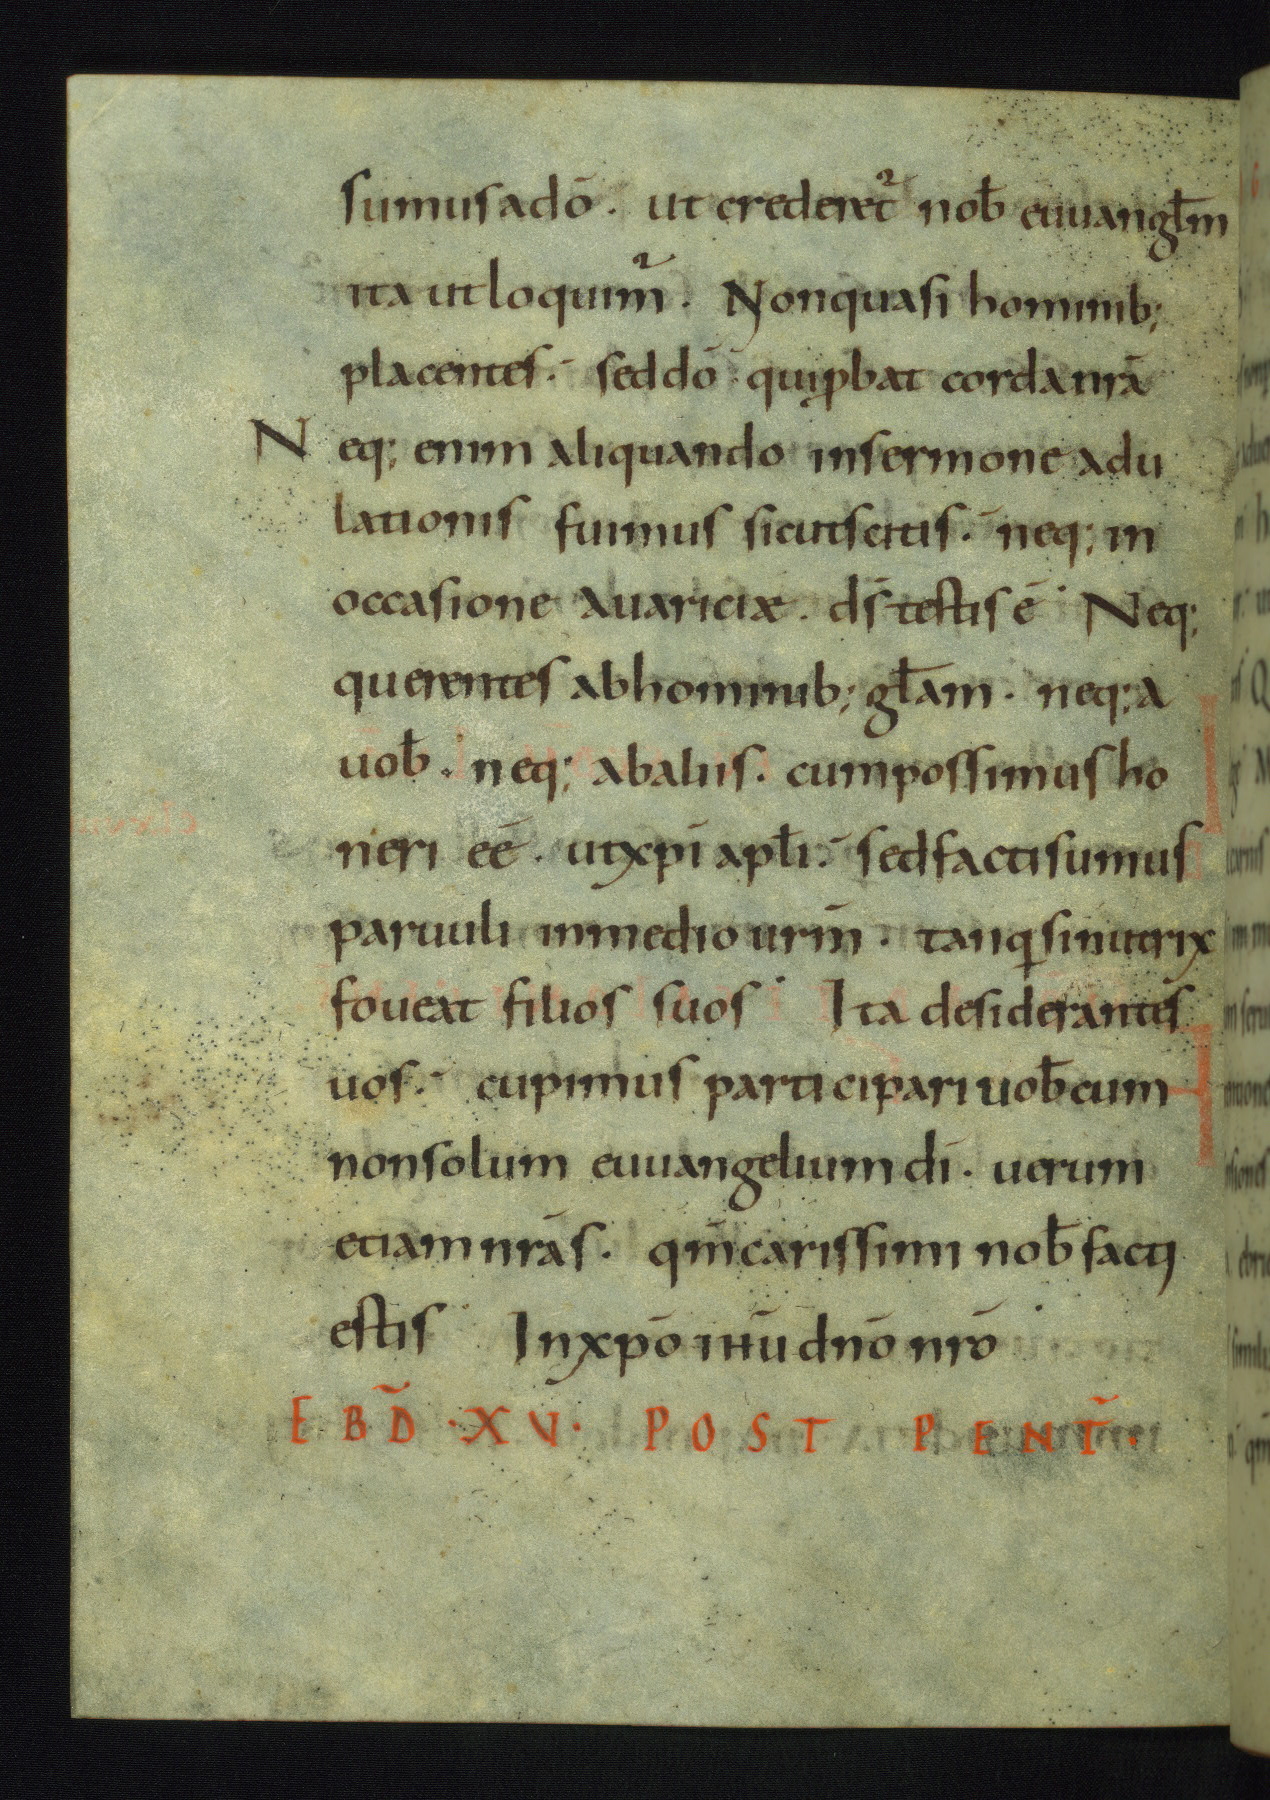 sumus a dō. ut crederet᷑ nob̄ euuangl̄m
ita ut loquim᷑. Non quasi hominib;
placentes. sed dō qui ꝓbat corda nr̄a
Neq; enim aliquando in sermone adu
lationis fuimus sicut scitis. neq; in
occasione auariciæ. ds̄ testis ē. Neq;
querentes ab hominib; gl̄am. neq; a
uob̄. neq; ab aliis. cum possimus ho
neri eē. ut xp̄i apl̄i. sed facti sumus
paruuli in medio urm̄. tanq̄ si nutrix
foueat filios suos. Ita desiderantes
uos. cupimus participari uob̄cum
non solum euuangelium dī. uerum
etiam nr̄as. qm̄ carissimi nob̄ facti
estis In xp̄o ihū dn̄o nr̄o
EBD̄ ·XV· POST PENT̄·